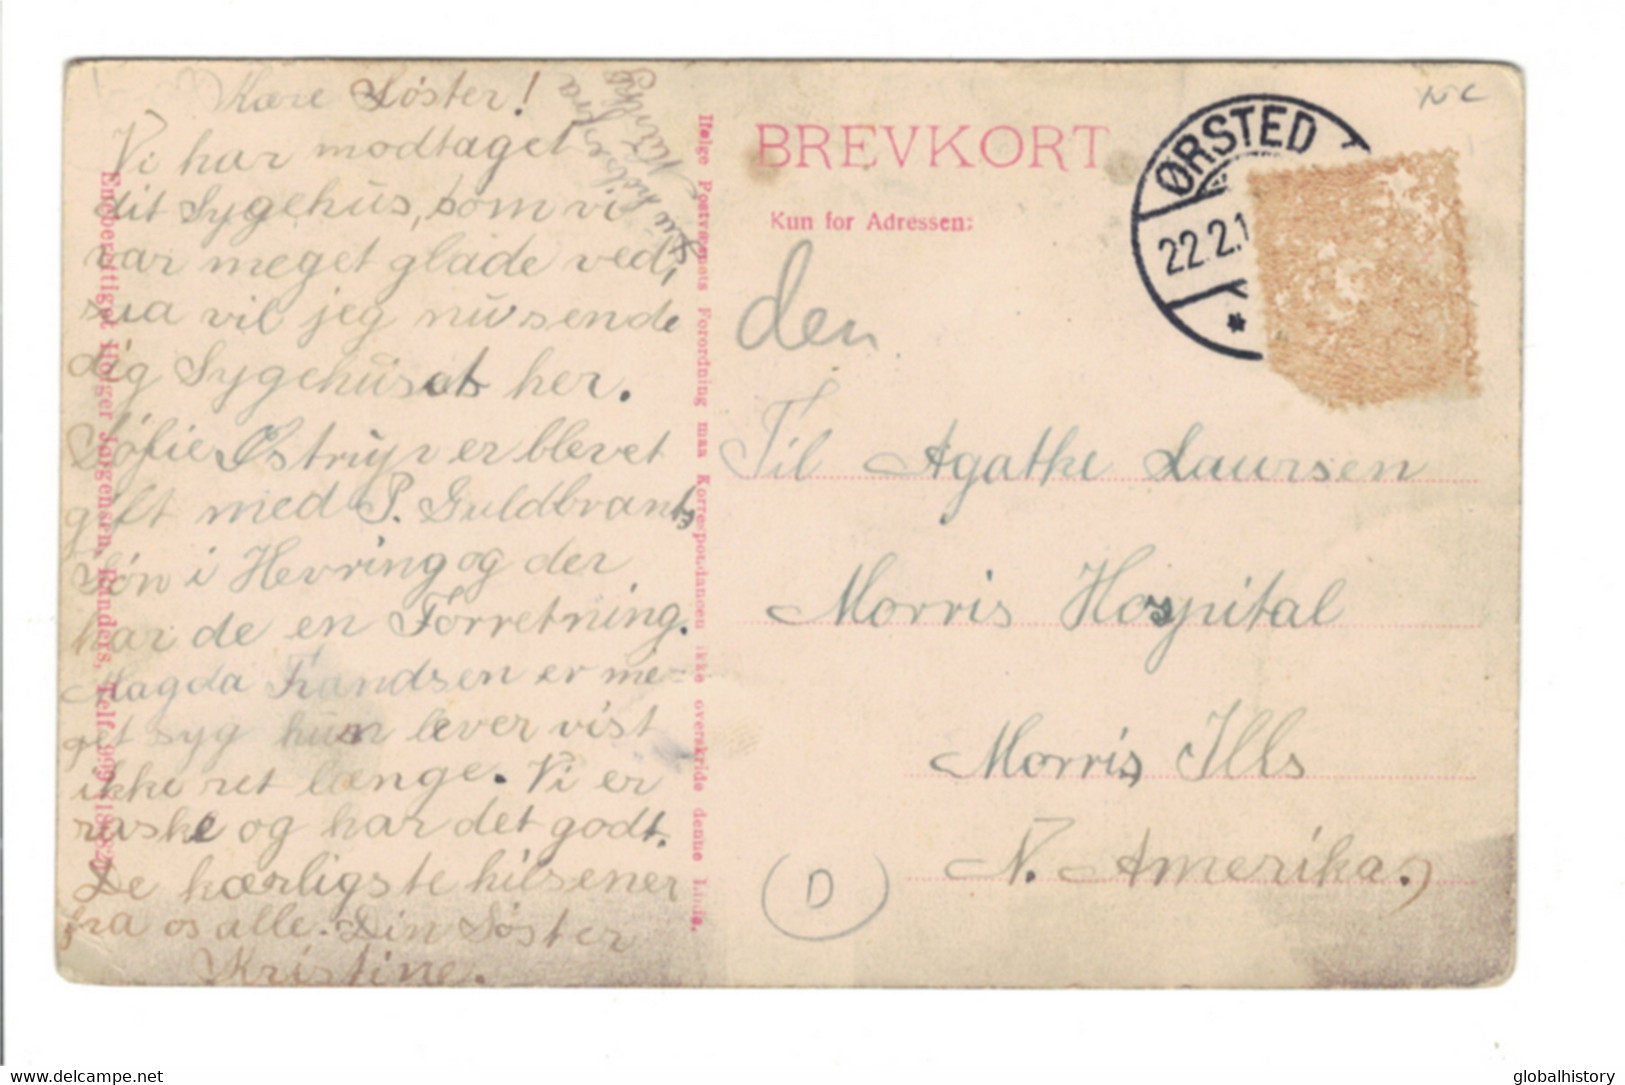 Kære Søster!
Vi har modtaget
dit Sygehus, som vi
var meget glade ved,
saa vil jeg nu sende
dig Sygehuset her.
Søfie Østrup er blevet
gift med P. Guldbrant
Sön i Hevring og der
har de en Forretning.
Magda Frandsen er me-
get syg hun lever vist
ikke ret længe. Vi er
raske og har det godt.
De kærligste hilsener
fra os alle. Din Søster
Kristine.
fra
Eneberettiget Holger Jørgensen, Randers, Telf. 999
Ifølge Postvæsnets Forordning maa Korrespondancen ikke overskride denne Linie.
BREVKORT
Kun for Adressen:
ØRSTED
22.2.1
den
Til Agathe Laursen
Morris Hospital
Morris Ills
N. Amerika.
D
www.delcampe.net
globalhistory